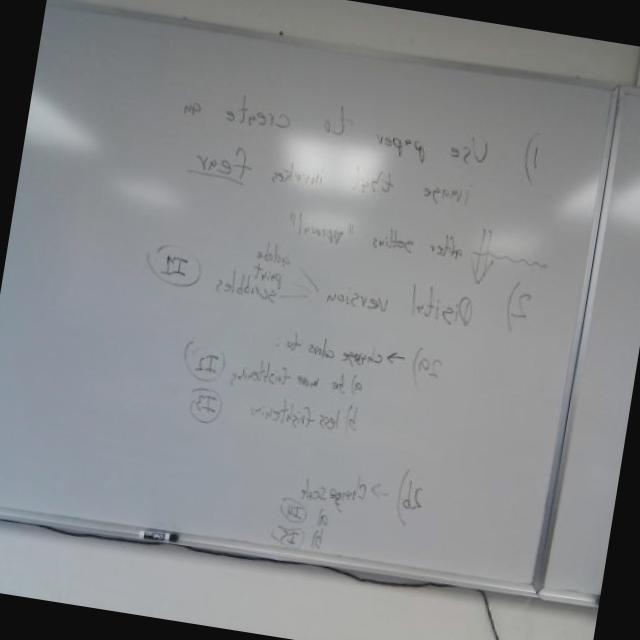 1) Use paper to create an
image that invokes fear
after getting "approval"
2) Digital version
adobe
paint
scribbles
II
2a) → change colors to:
a) be more frightening II
b) less frightening II
2b) → change scale
a)
b)